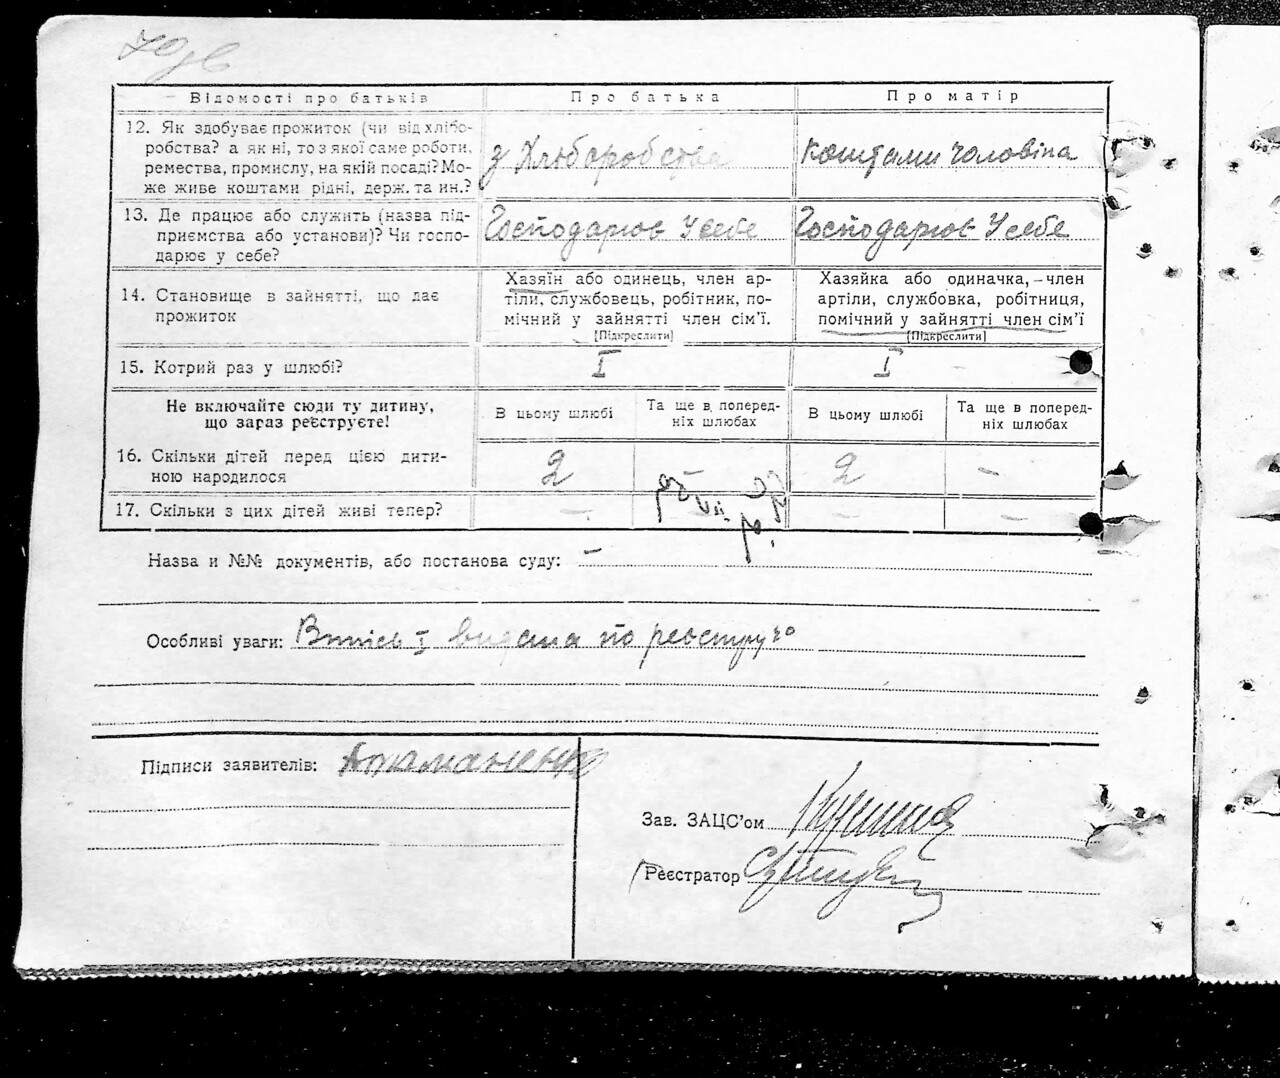 70зв
Відомості про батьків Про батька Про матір
12. Як здобуває прожиток (чи від хлібо-
робства? а як ні, то з якої саме роботи,
ремества, промислу, на якій посаді? Мо-
же живе коштами рідні, держ. та ин.?
з Хліборобства
коштами чоловіка
13. Де працює або служить (назва під-
приємства або установи)? Чи госпо-
дарює у себе?
Господарює У себе
Господарює У себе
14. Становище в зайнятті, що дає
прожиток
Хазяїн або одинець, член ар-
тіли, службовець, робітник, по-
мічний у зайнятті член сім'ї.
[Підкреслити]
Хазяйка або одиначка,—член
артіли, службовка, робітниця,
помічний у зайнятті член сім'ї
[Підкреслити]
15. Котрий раз у шлюбі? I I
Не включайте сюди ту дитину,
що зараз реєструєте!
В цьому шлюбі
Та ще в поперед-
ніх шлюбах
В цьому шлюбі
Та ще в поперед-
ніх шлюбах
16. Скільки дітей перед цією дити-
ною народилося
2 – 2 –
17. Скільки з цих дітей живі тепер? – – –
Назва и №№ документів, або постанова суду: –
Особливі уваги: Випись I видана по реєстру
Підписи заявителів: Атаманенко
Зав. ЗАЦС'ом
Реєстратор